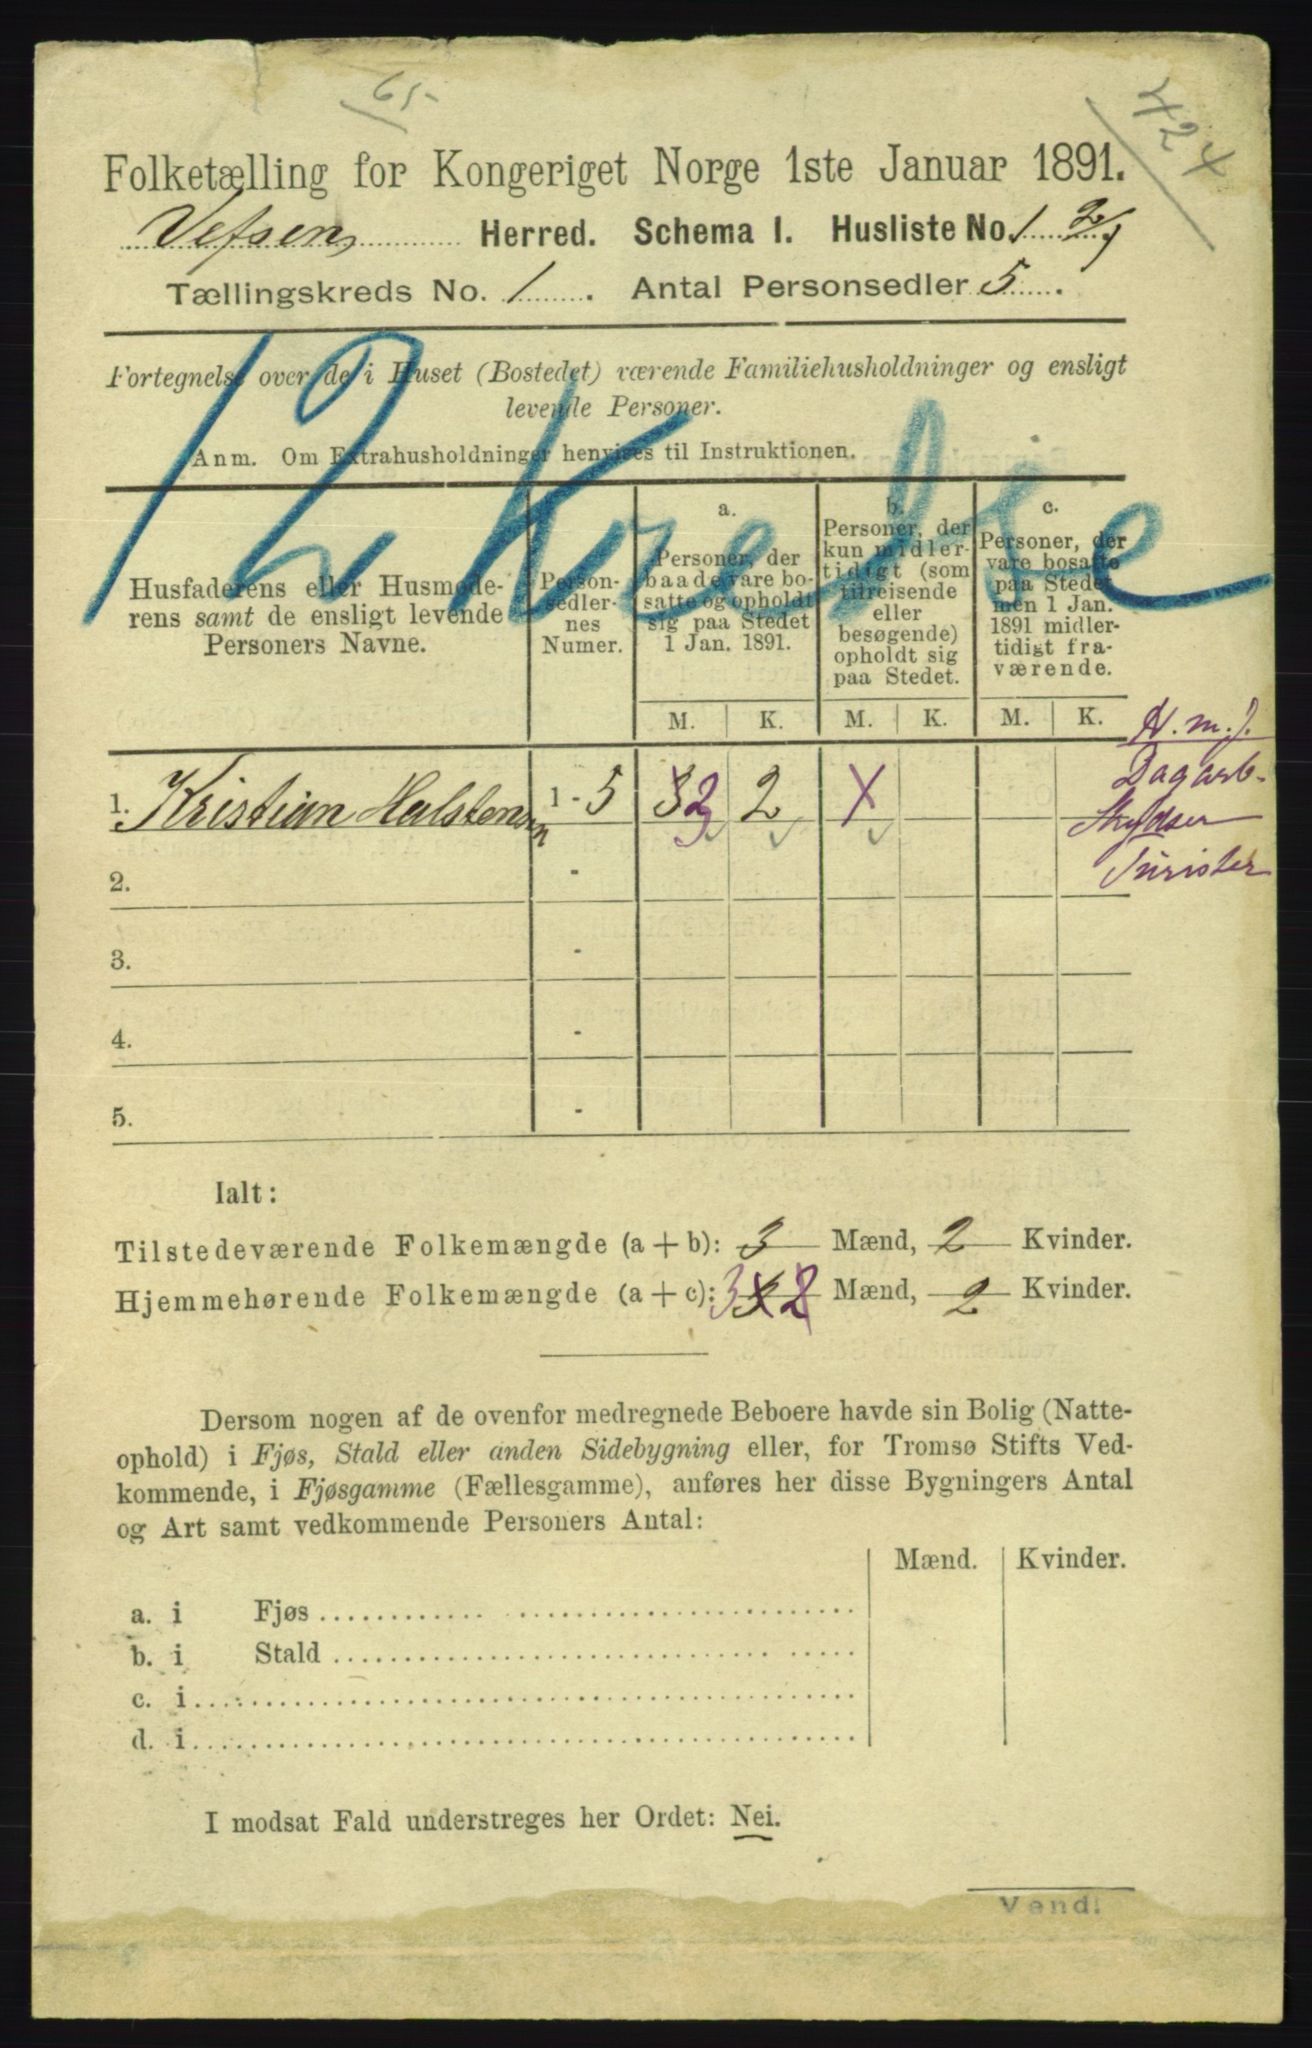 65-
424
Folketælling for Kongeriget Norge 1ste Januar 1891.
Vefsens Herred. Schema I. Husliste No. 1
Tællingskreds No. 1. Antal Personsedler 5.
Fortegnelse over de i Huset (Bostedet) værende Familiehusholdninger og ensligt
levende Personer.
Anm. Om Extrahusholdninger henvises til Instruktionen.
12 Kreske
Husfaderens eller Husmode-
rens samt de ensligt levende
Personers Navne.
Person-
sedler-
nes
Numer.
a.
Personer, der
baade vare bo-
satte og opholdt
sig paa Stedet
1 Jan. 1891.
b.
Personer, der
kun midler-
tidigt (som
tilreisende
eller
besøgende)
opholdt sig
paa Stedet.
c.
Personer, der
vare bosatte
paa Stedet
men 1 Jan.
1891 midler-
tidigt fra-
værende.
M. K. M. K. M. K.
1. Kristian Halstensen 1 - 5 3 2 2 X
2. -
3. -
4. -
5. -
Dagarb-
Ialt:
Tilstedeværende Folkemængde (a + b): 3 Mænd, 2 Kvinder.
Hjemmehørende Folkemængde (a + c): 3 Mænd, 2 Kvinder.
Dersom nogen af de ovenfor medregnede Beboere havde sin Bolig (Natte-
ophold) i Fjøs, Stald eller anden Sidebygning eller, for Tromsø Stifts Ved-
kommende, i Fjøsgamme (Fællesgamme), anføres her disse Bygningers Antal
og Art samt vedkommende Personers Antal:
Mænd. Kvinder.
a. i Fjøs
b. i Stald
c. i
d. i
I modsat Fald understreges her Ordet: Nei.
Vend!